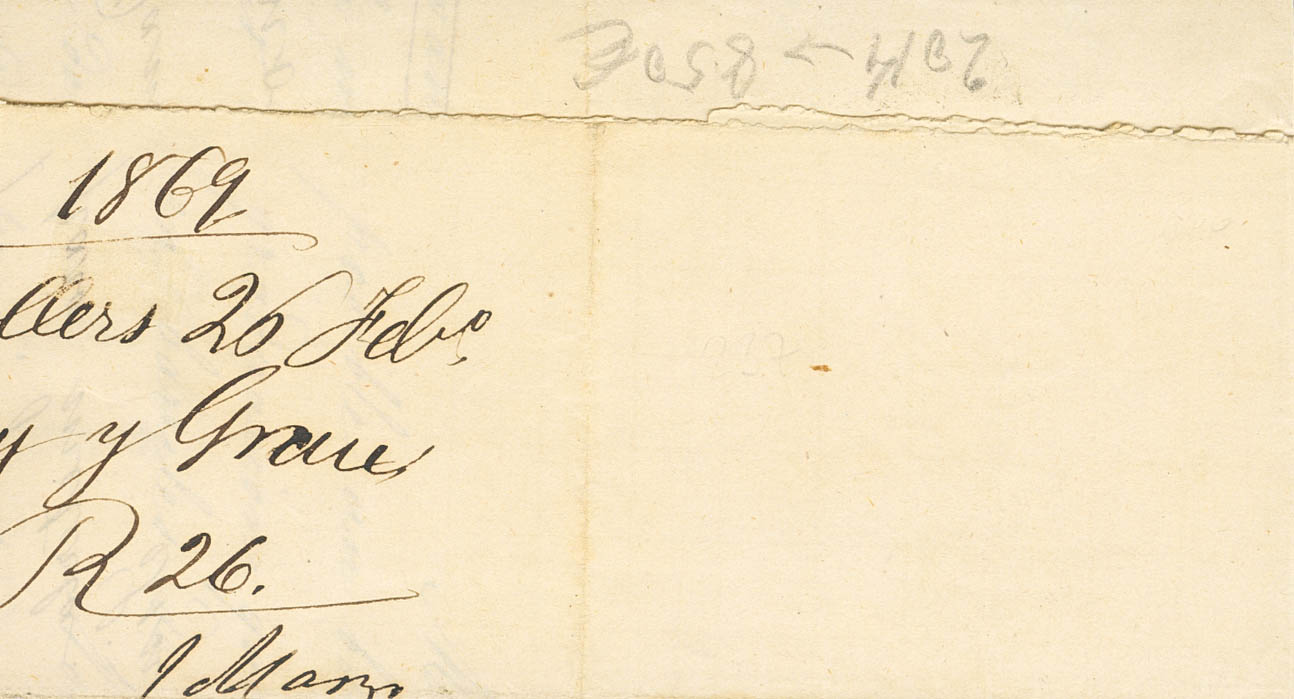 1869
llers 26 Febº
y y Grau
R 26.
1 Marzo